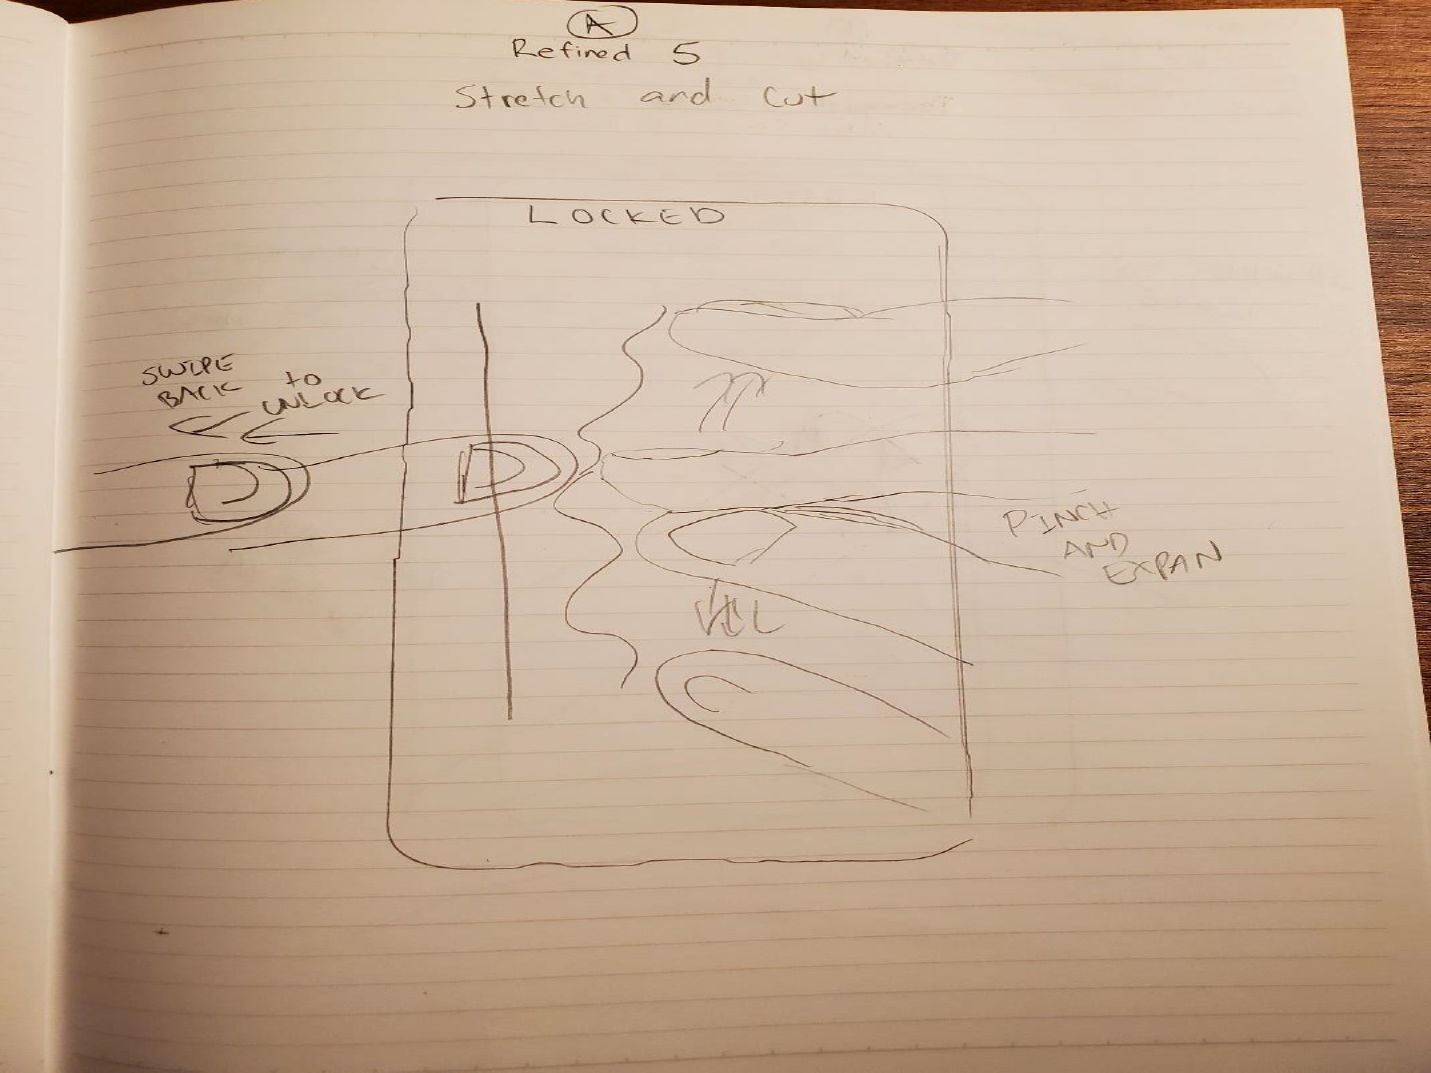 A
Refined 5
Stretch and Cut
LOCKED
SWIPE
BACK to
UNLOCK
PINCH
AND
EXPAN